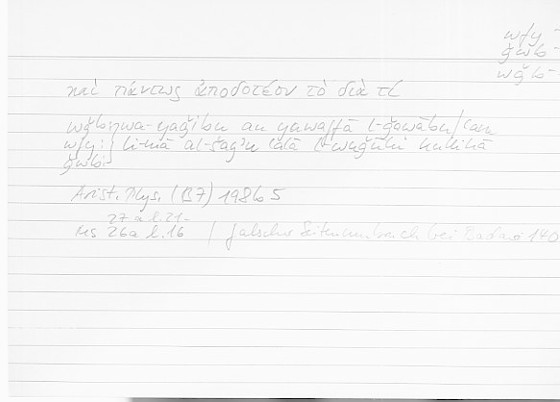 wfy -
ǧwb -
wǧb -
καὶ πάντως ἀποδοτέον τὸ διὰ τί
wǧb: wa-yaǧibu an yuwaffā l-ǧawābu / ʿan
wfy: li-mā al-šayʾu ʿalā l-wuǧūhi kullihā
ǧwb:
Arist. Phys. (B7) 198b5
27 a l. 21-
Ms 26a l. 16 / falscher Seitenumbruch bei Badawi 140